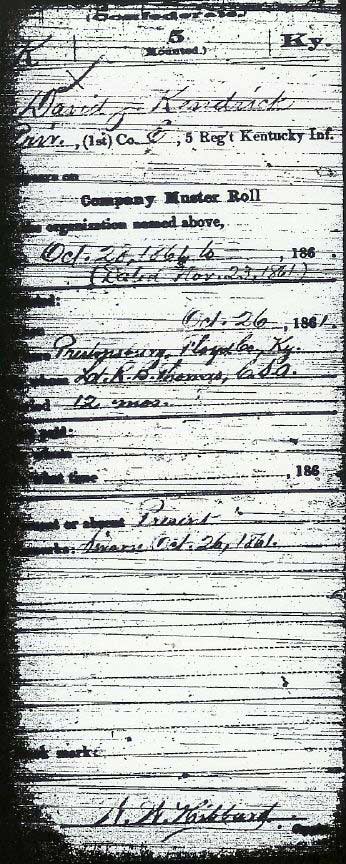 (Confederate.)
K 5 Ky.
(Mounted.)
David J Kendrick
Priv., (1st) Co. E, 5 Reg't Kentucky Inf.
on
Company Muster Roll
organization named above,
Oct. 26, 1861, to , 186
(Dated Nov. 23, 1861)
Oct. 26, 1861.
Prestonsburg, Floyd Co, Ky.
Lt. K. B. Thomas, C.S.A.
12 mos.
paid:
time , 186
or absent Present
Sworn Oct. 26, 1861.
mark:
Hibbard.